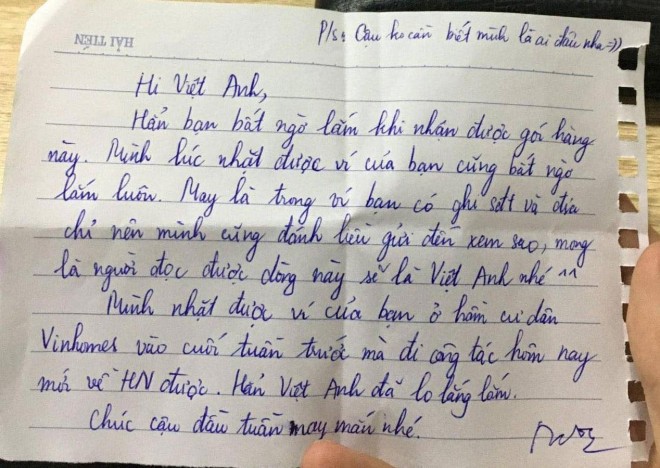 HẢI TIẾN
P/s: Cậu ko cần biết mình là ai đâu nha =))
Hi Việt Anh,
Hẳn bạn bất ngờ lắm khi nhận được gói hàng
này. Mình lúc nhặt được ví của bạn cũng bất ngờ
lắm luôn. May là trong ví bạn có ghi sđt và địa
chỉ nên mình cũng đánh liều gửi đến xem sao, mong
là người đọc được dòng này sẽ là Việt Anh nhé ^^
Mình nhặt được ví của bạn ở hầm cư dân
Vinhomes vào cuối tuần trước mà đi công tác hôm nay
mới về HN được. Hẳn Việt Anh đã lo lắng lắm.
Chúc cậu đầu tuần may mắn nhé.